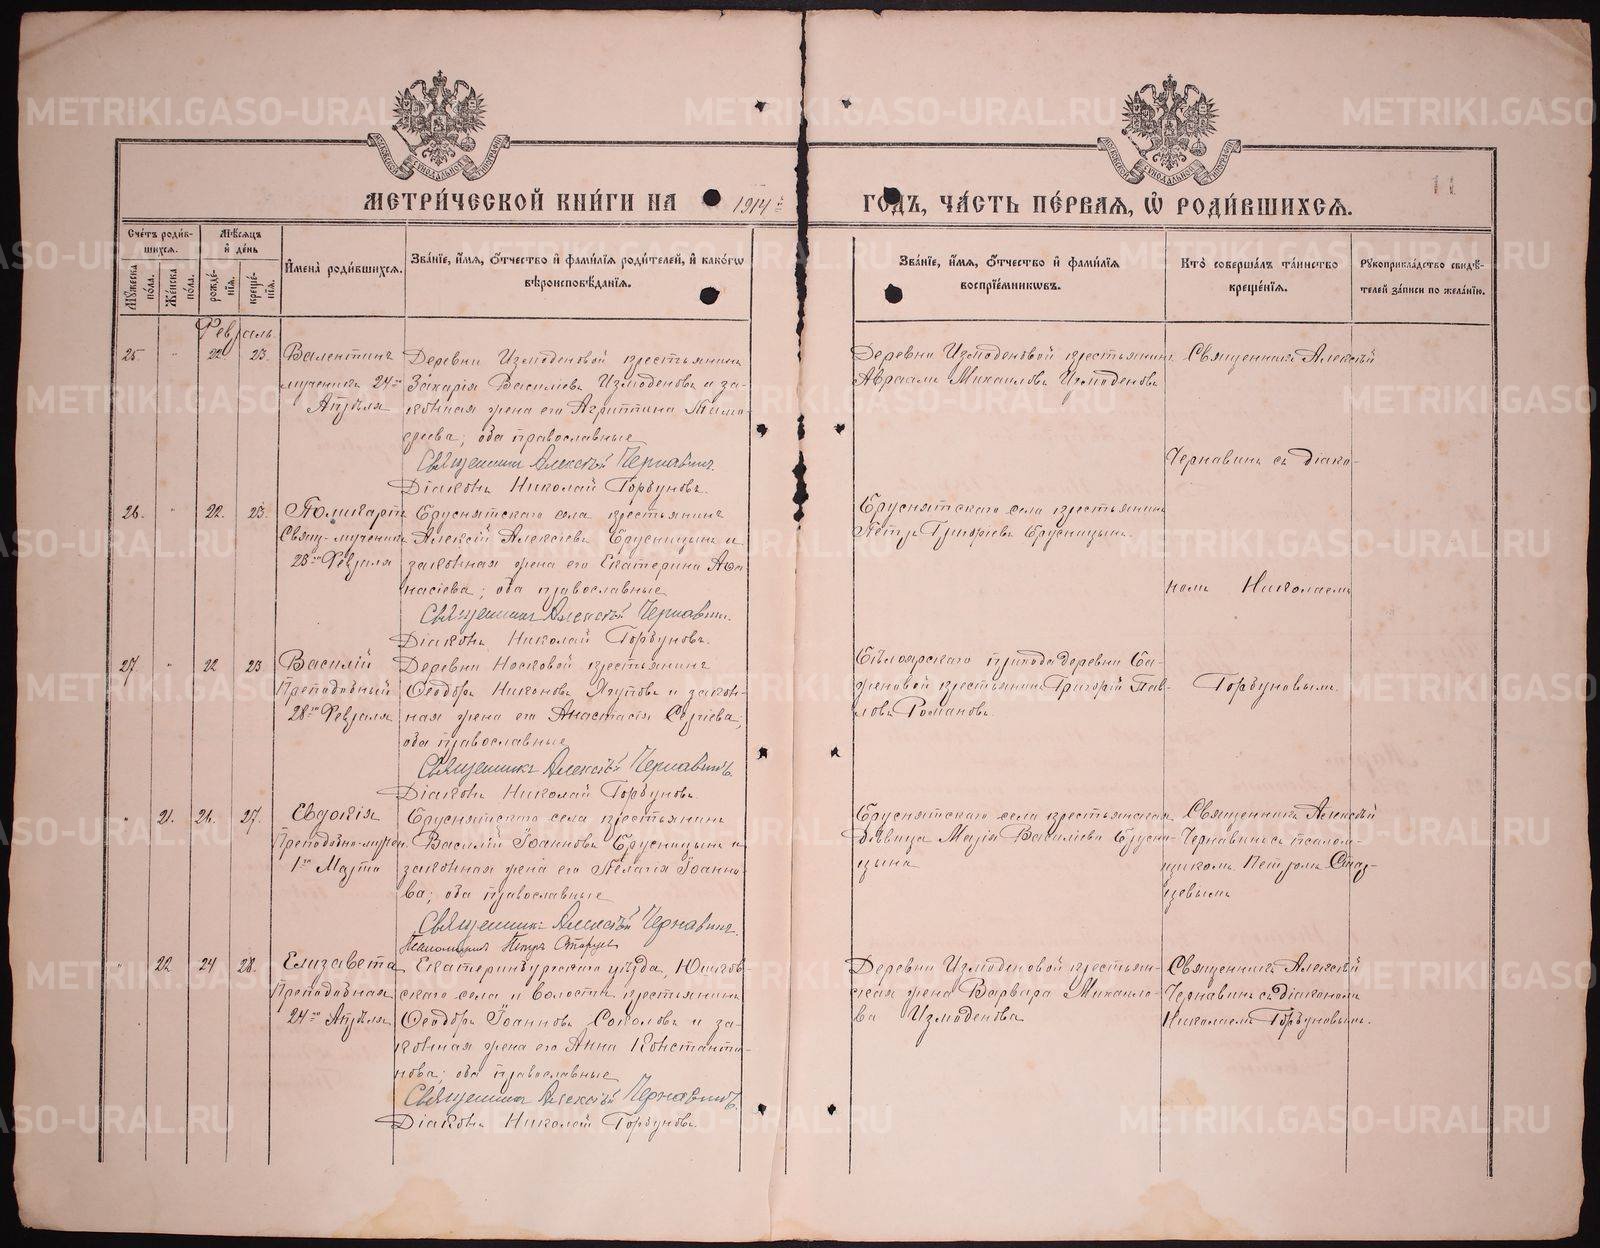 МЕТРИ́ЧЕСКОЙ КНИ́ГИ НА 1914 й
ГОДЪ, ЧА́СТЬ ПЕ́РВАЯ, Ѡ РОДИ́ВШИХСЯ.
11
Сче́тъ роди́в-
шихся.
Мꙋ́жеска по́ла.
Же́нска по́ла.
Мѣ́сяцъ и҆ де́нь
рожде́нїѧ.
креще́нїѧ.
И҆мена̀ роди́вшихсѧ.
Зва́нїе, и҆́мѧ, ѻ҆́тчество и҆ фами́лїѧ роди́телей, и҆ како́гѡ
вѣроисповѣ́данїѧ.
Зва́нїе, и҆́мѧ, ѻ҆́тчество и҆ фами́лїѧ
воспрїе́мникѡвъ.
Кто̀ соверша́лъ та́инство
креще́нїѧ.
Рꙋкоприкла́дство свидѣ́-
телей за́писи по жела́нїю.
Февраль
25 " 22 23.
Валентинъ
мученикъ 24го
Апрѣля
Деревни Измоденовой крестьянинъ
Захарія Василіевъ Измоденовъ и за-
конная жена его Агриппина Тимо-
ѳеева; оба православные
Священникъ Алексѣй Чернавинъ.
Діаконъ Николай Горбуновъ.
Деревни Измоденовой крестьянинъ
Авраамъ Михаиловъ Измоденовъ
Священникъ Алексѣй
Чернавинъ съ діако-
26. " 22. 23.
Поликарпъ
Свящ-мученикъ
23го Февраля
Бруснятскаго села крестьянинъ
Алексій Алексіевъ Брусницынъ и
законная жена его Екатерина Аѳа-
насіева; оба православные
Священникъ Алексѣй Чернавинъ.
Діаконъ Николай Горбуновъ.
Бруснятскаго села крестьянинъ
Петръ Григоріевъ Брусницынъ.
номъ Николаемъ
27 " 22 23
Василій
Преподобный
28го Февраля
Деревни Носковой крестьянинъ
Ѳеодоръ Никоновъ Ягуповъ и закон-
ная жена его Анастасія Сергіева;
оба православные
Священникъ Алексѣй Чернавинъ.
Діаконъ Николай Горбуновъ.
Бѣлоярскаго прихода деревни Ба-
женовой крестьянинъ Григорій Пав-
ловъ Романовъ.
Горбуновымъ.
" 21. 26. 27.
Евдокія
Преподобно-мучен.
1го Марта
Бруснятскаго села крестьянинъ
Василій Іоанновъ Брусницынъ и
законная жена его Пелагія Іоанно-
ва; оба православные
Священникъ Алексѣй Чернавинъ.
Псаломщикъ Петръ Старцевъ
Бруснятскаго села крестьянская
дѣвица Марія Василіева Брусни-
цына
Священникъ Алексѣй
Чернавинъ съ псалом-
щикомъ Петромъ Стар-
цевымъ
" 22 24 28.
Елизавета
Преподобная
24го Апрѣля
Екатеринбургскаго уѣзда,
скаго села и волости крестьянинъ
Ѳеодоръ Іоанновъ Соколовъ и за-
конная жена его Анна Константи-
нова; оба православные
Священникъ Алексѣй Чернавинъ.
Діаконъ Николай Горбуновъ.
Деревни Измоденовой крестьян-
ская жена Варвара Михаило-
ва Измоденова
Священникъ Алексѣй
Чернавинъ съ діакономъ
Николаемъ Горбуновымъ.
METRIKI.GASO-URAL.RU